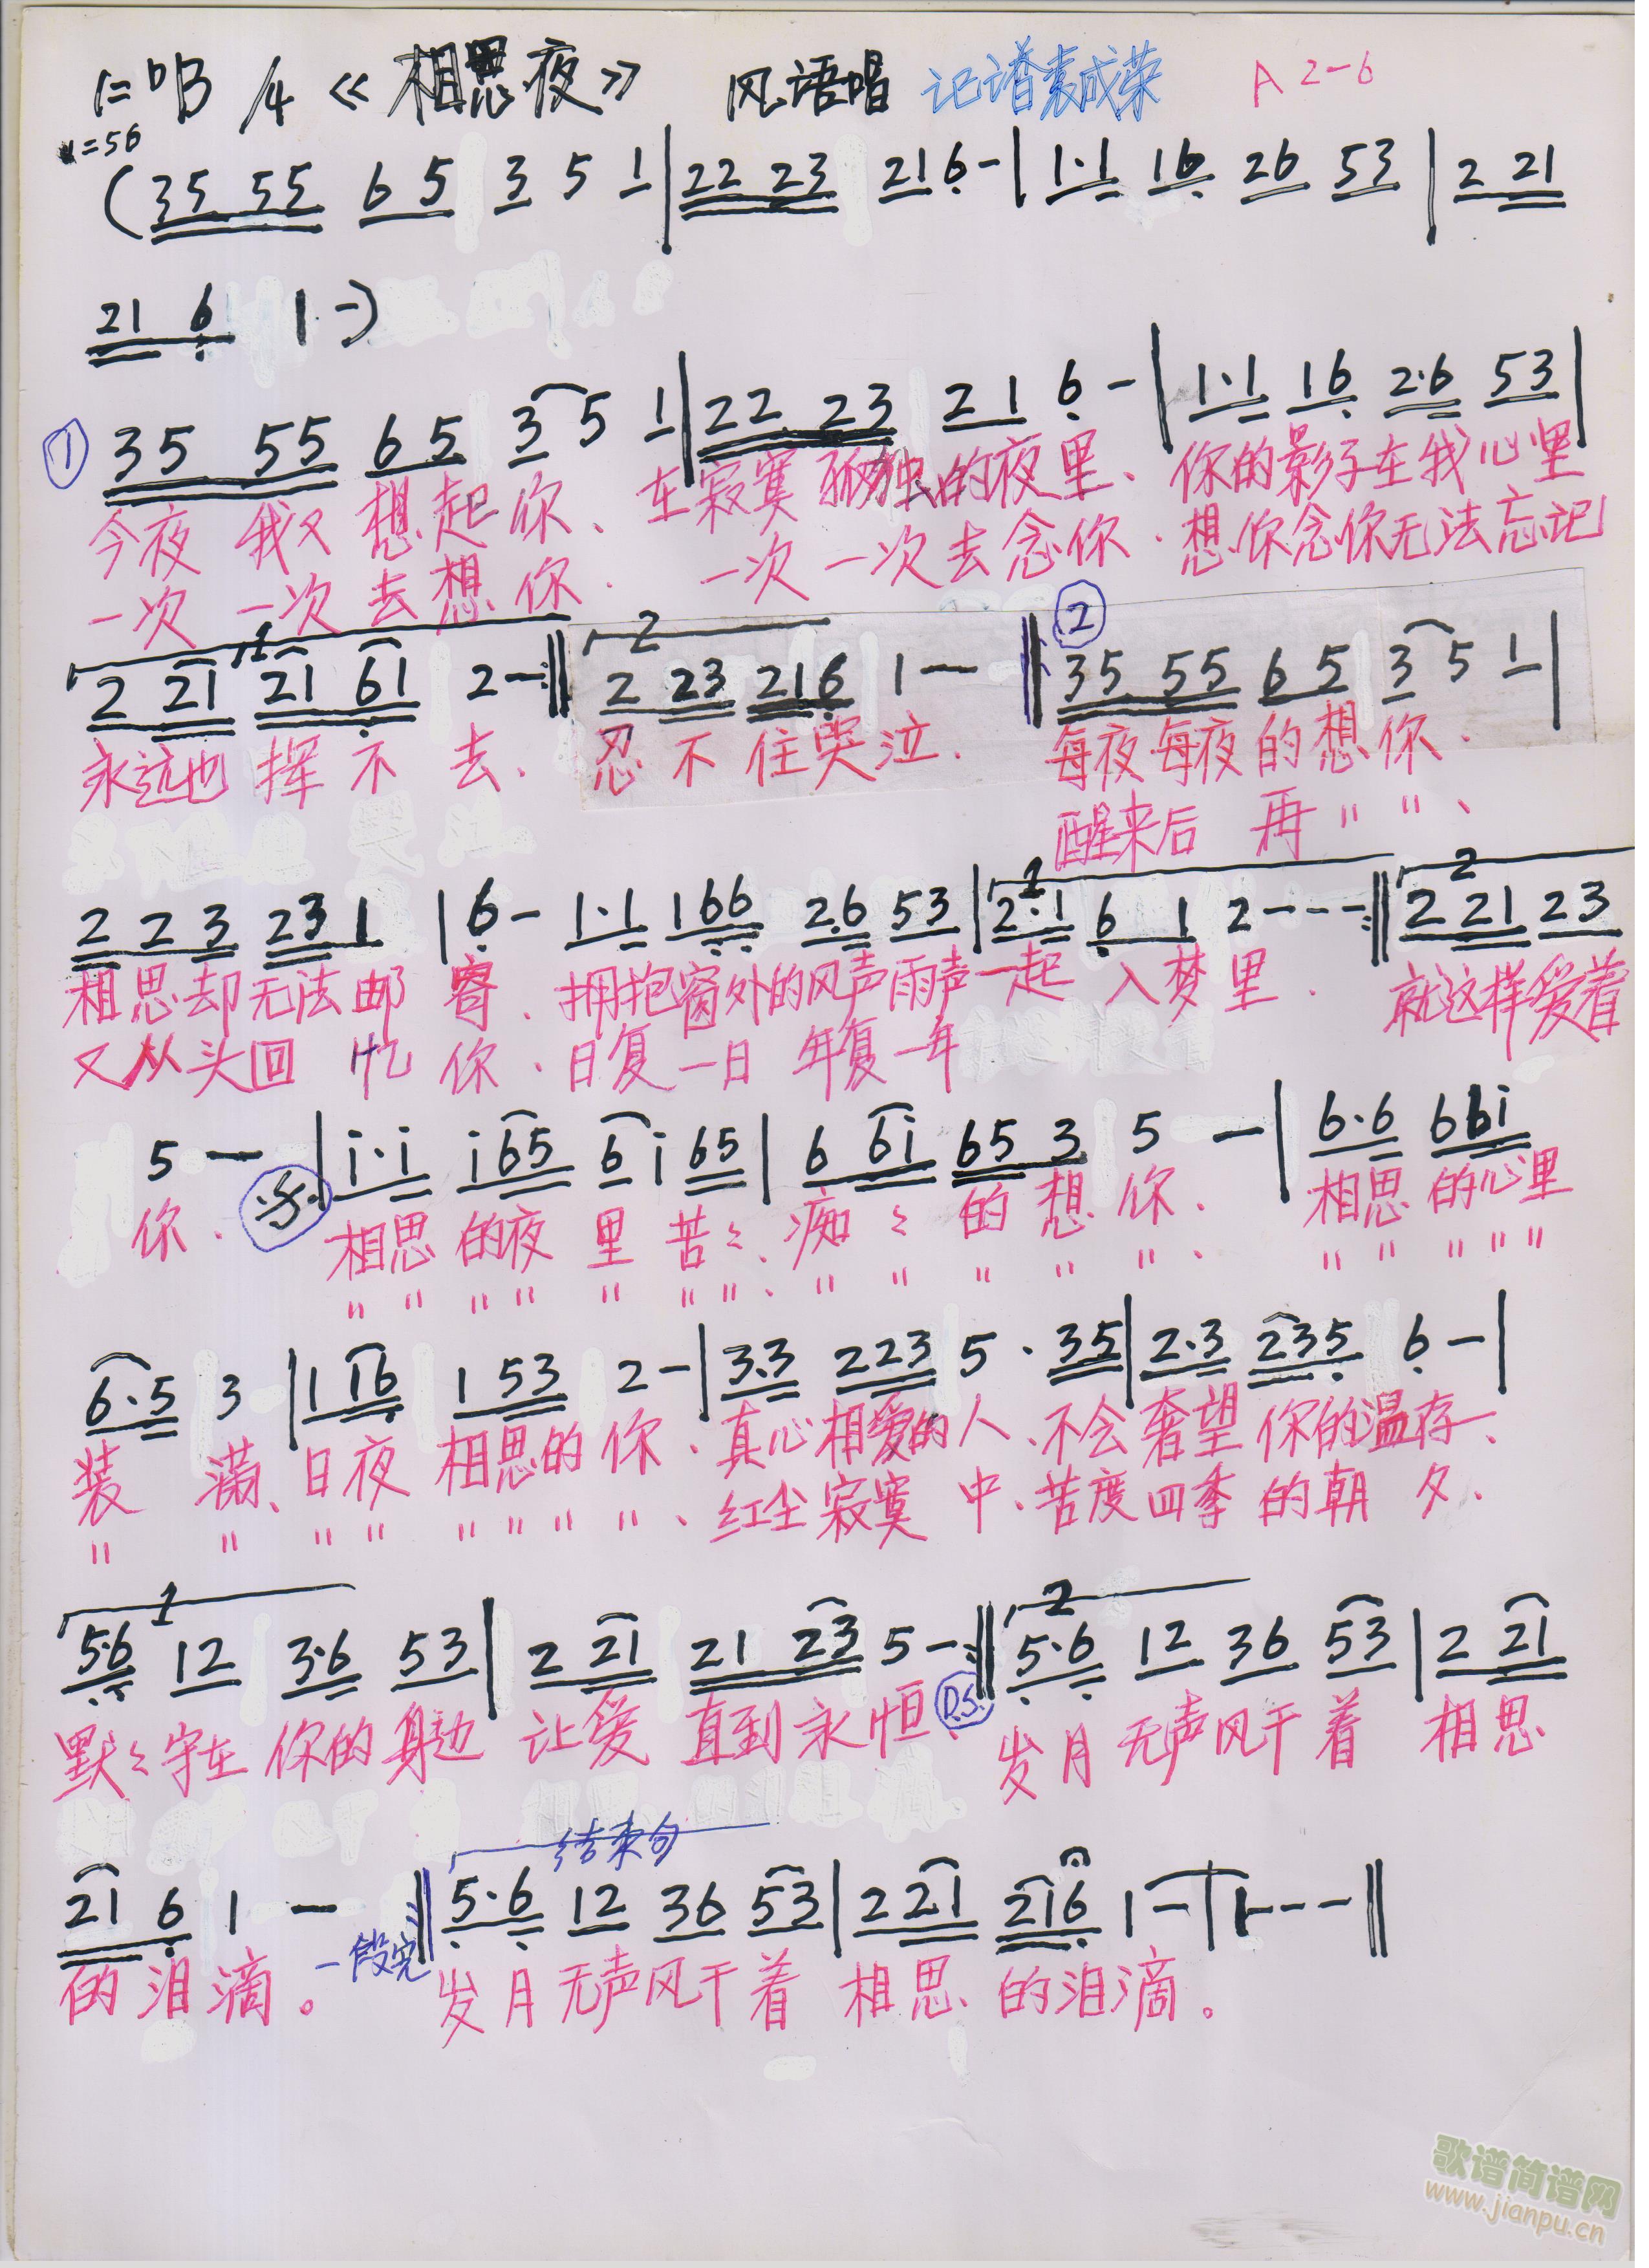 1=ᵇB /4 《相思夜》 风语唱 记谱袁成荣 A 2-6
=56
(35 55 6 5 3 5 1|22 23 216-|1·1 16 26 53|2 21
21 6 1 -)
① 35 55 6 5 3 5 1|22 23 21 6-|1·1 16 2·6 53|
今夜 我又 想起你、在寂寞孤独的夜里、你的影子在我心里
一次 一次去想你. 一次一次去念你.想你念你无法忘记
1 2 ②
2 21 21 61 2-:‖2 23 216 1— ‖35 55 6 5 3 5 1|
永远也 挥不 去、忍不住哭泣. 每夜每夜的想你.
醒来后 再〃〃、
1 2
2 2 3 23 1 |6- 1·1 166 2·6 53|2·1 6 1 2---:‖2 21 23
相思却无法邮寄.拥抱窗外的风声雨声一起 入梦里. 就这样爱着
又从头回忆你.日复一日年复一年
5 — |i·i i65 6i 65|6 6i 65 3 5 —|6·6 66i
你. 相思的夜里苦々、痴々的想你. 相思的心里
〃〃〃〃〃〃〃、〃〃〃〃〃、〃〃〃〃〃
6·5 3 |1 16 1 53 2-|3·3 223 5·35|2·3 235 6-|
装 满、日夜 相思的你、真心相爱的人、不会奢望你的温存、
〃 〃 〃〃 〃〃〃 〃、红尘寂寞 中、苦度四季的朝 夕、
1 2
5·6 12 3·6 53|2 21 21 23 5-:‖5·6 12 36 53|2 21
默々守在你的身边 让爱 直到永恒、D.S. 岁月无声风干着 相思
结束句
21 6 1 — ‖5·6 12 36 53|2 21 216 1-|1---‖
的泪滴。一段完 岁月无声风干着 相思 的泪滴。
歌谱简谱网
www.jianpu.cn